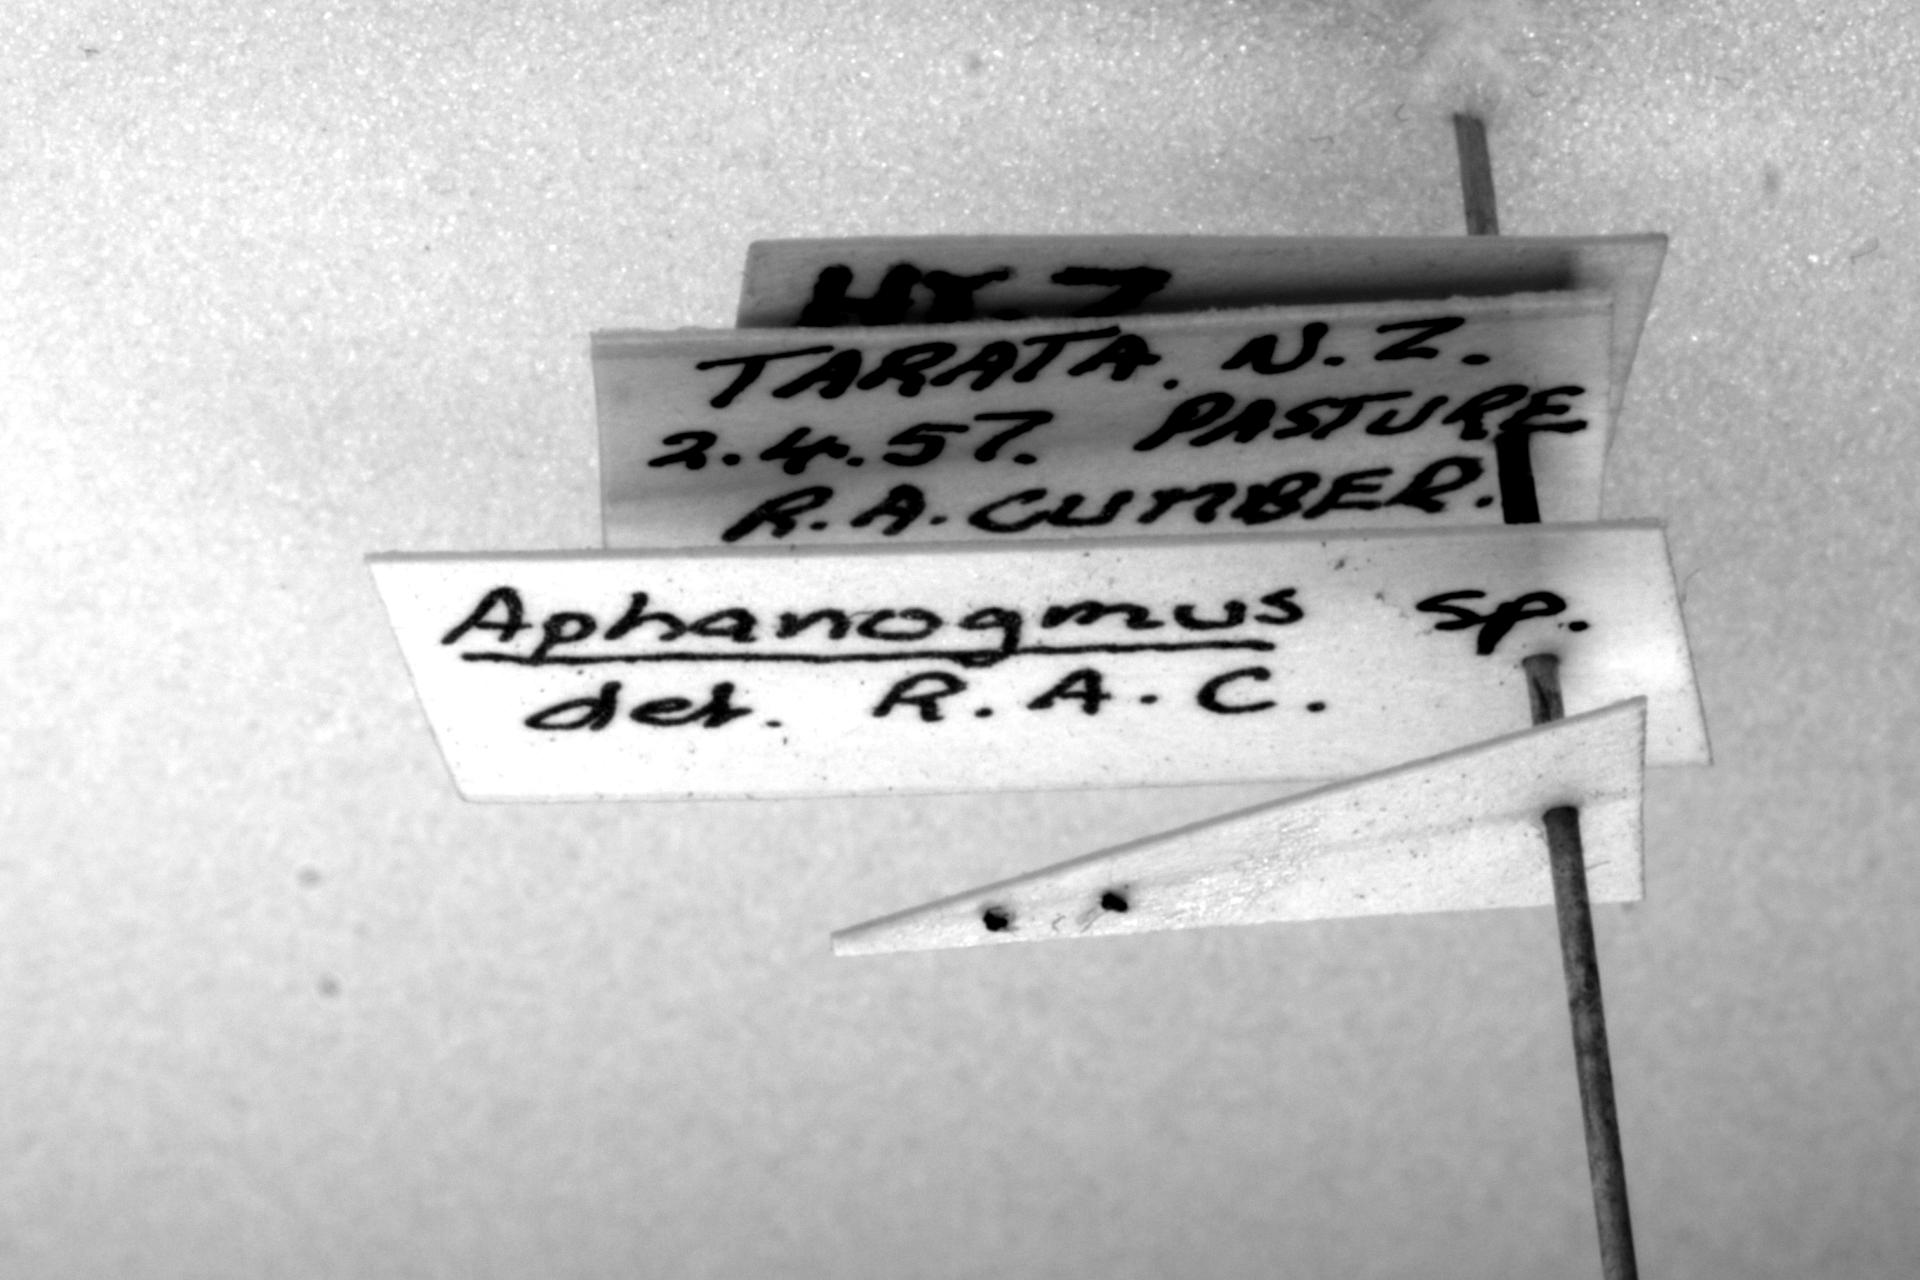 HY. 7
TARATA. N.Z.
2.4.57. PASTURE
R.A. CUMBER.
Aphanogmus sp.
det. R.A.C.